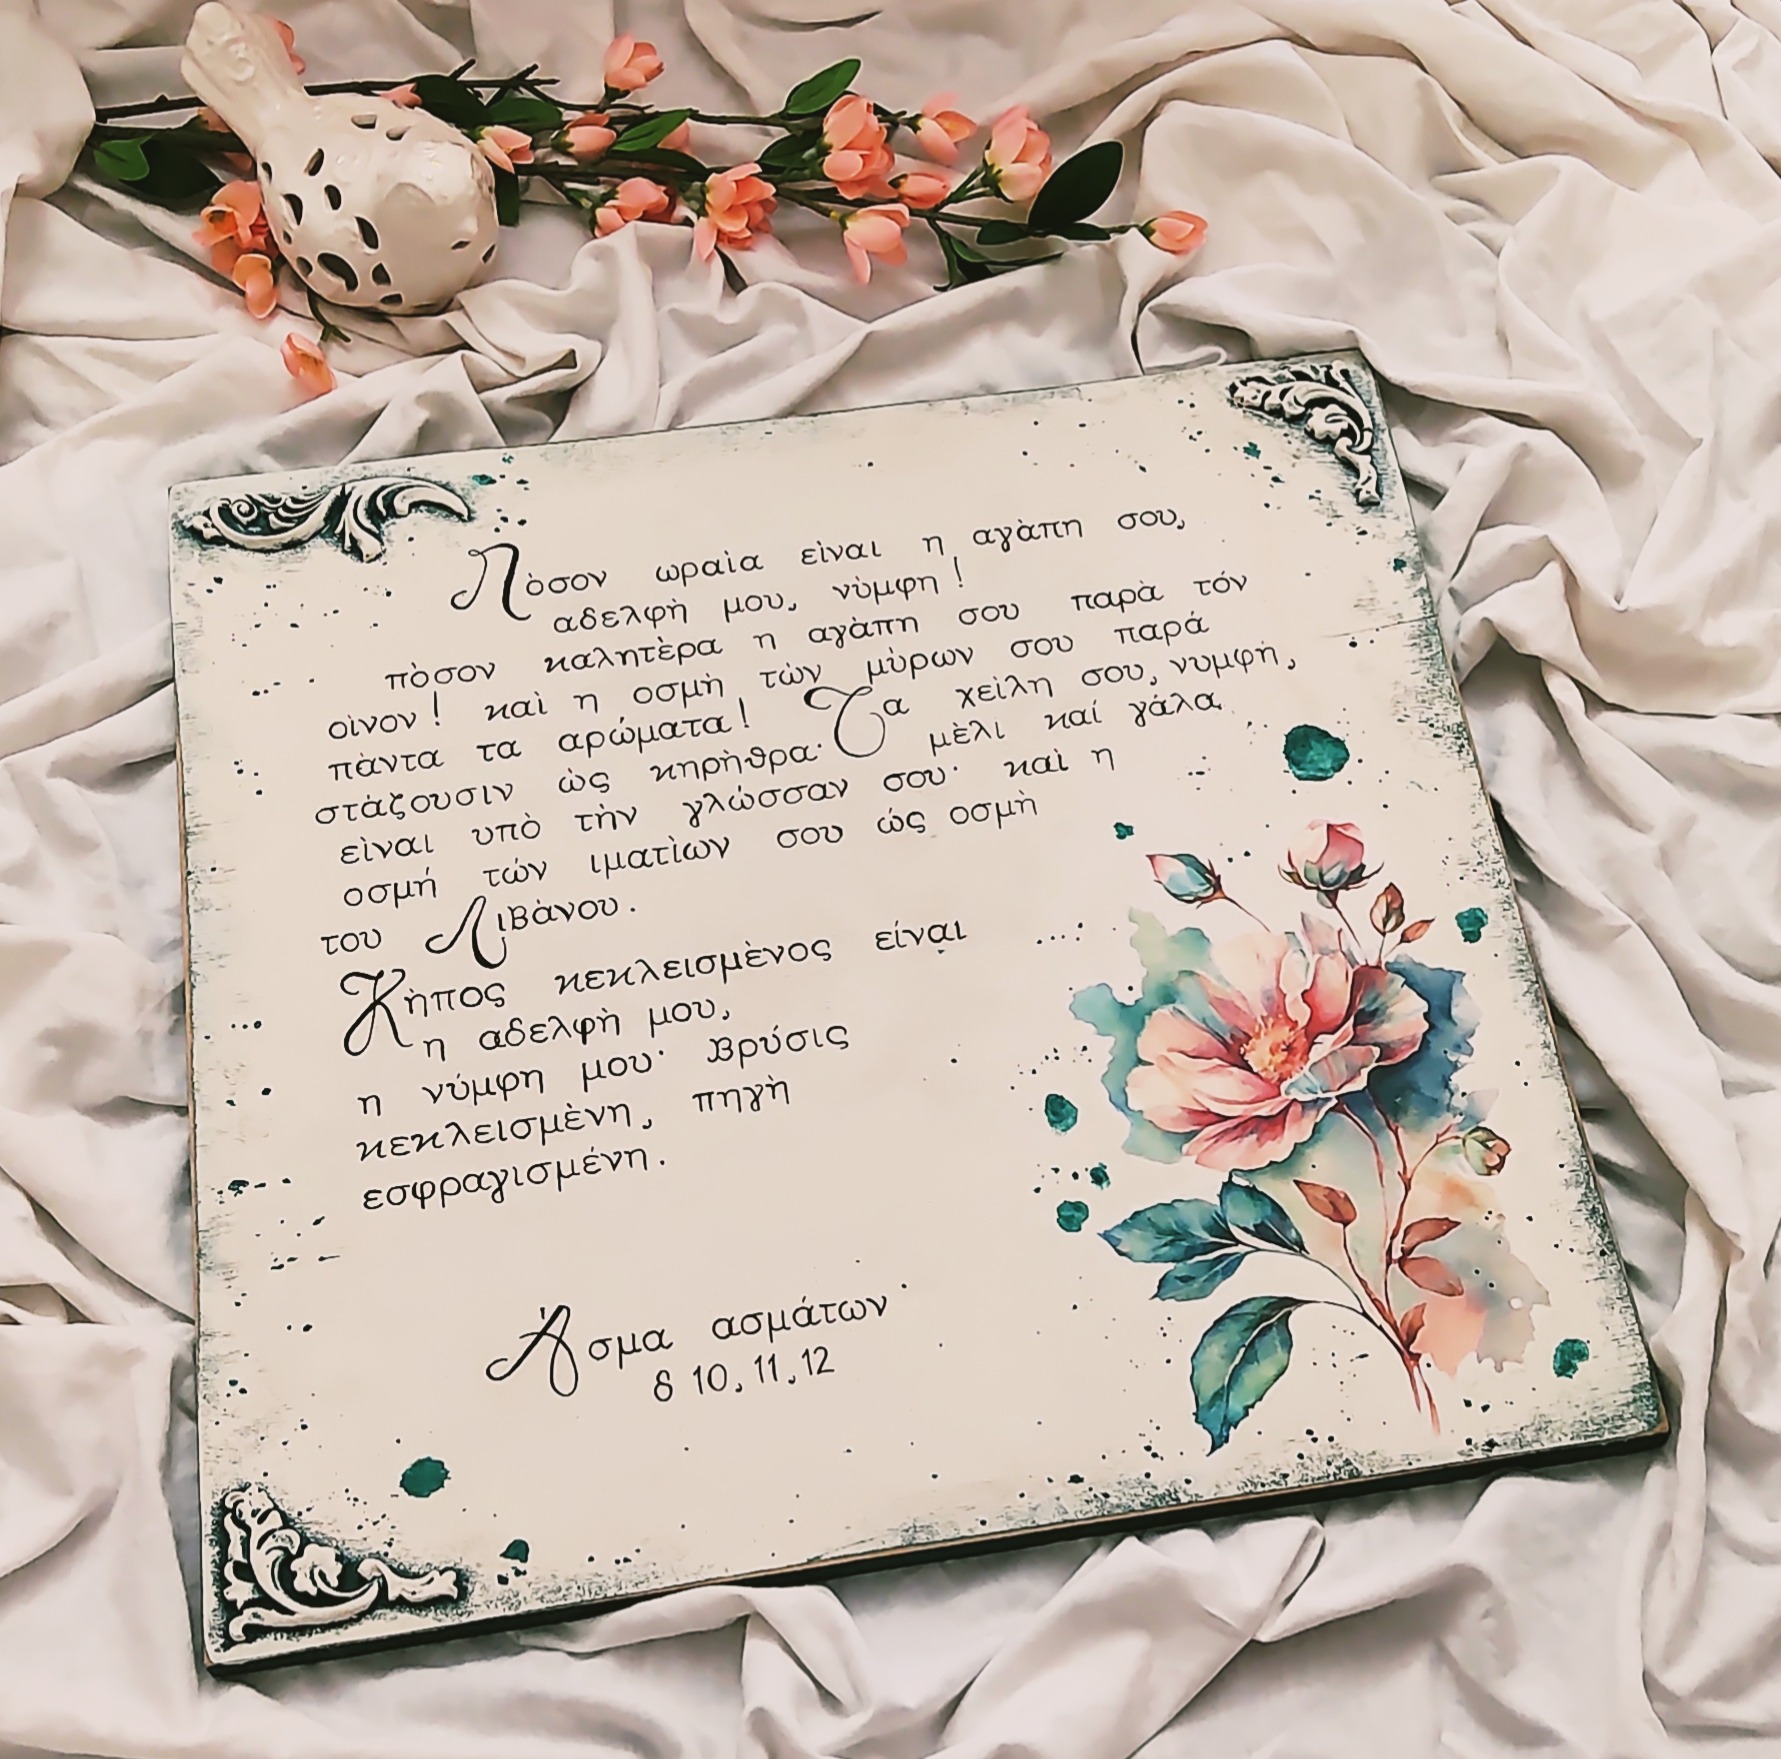 Πὸσον ωραὶα εὶναι η αγὰπη σου,
αδελφὴ μου, νὺμφη!
πὸσον καλητὲρα η αγὰπη σου παρὰ τόν
οὶνον! καὶ η οσμὴ τὼν μὺρων σου παρά
πὰντα τα αρώματα! Τα χεὶλη σου, νυμφη,
στὰζουσιν ὼς κηρὴθρα· μὲλι καί γάλα
εὶναι υπὸ τὴν γλώσσαν σου· καὶ η
οσμή τών ιματὶων σου ώς οσμὴ
του Λιβὰνου.
Κὴπος κεκλεισμὲνος είναι
η αδελφὴ μου,
η νύμφη μου· Βρύσις
κεκλεισμὲνη, πηγὴ
εσφραγισμένη.
Άσμα ασμάτων
δ 10, 11, 12